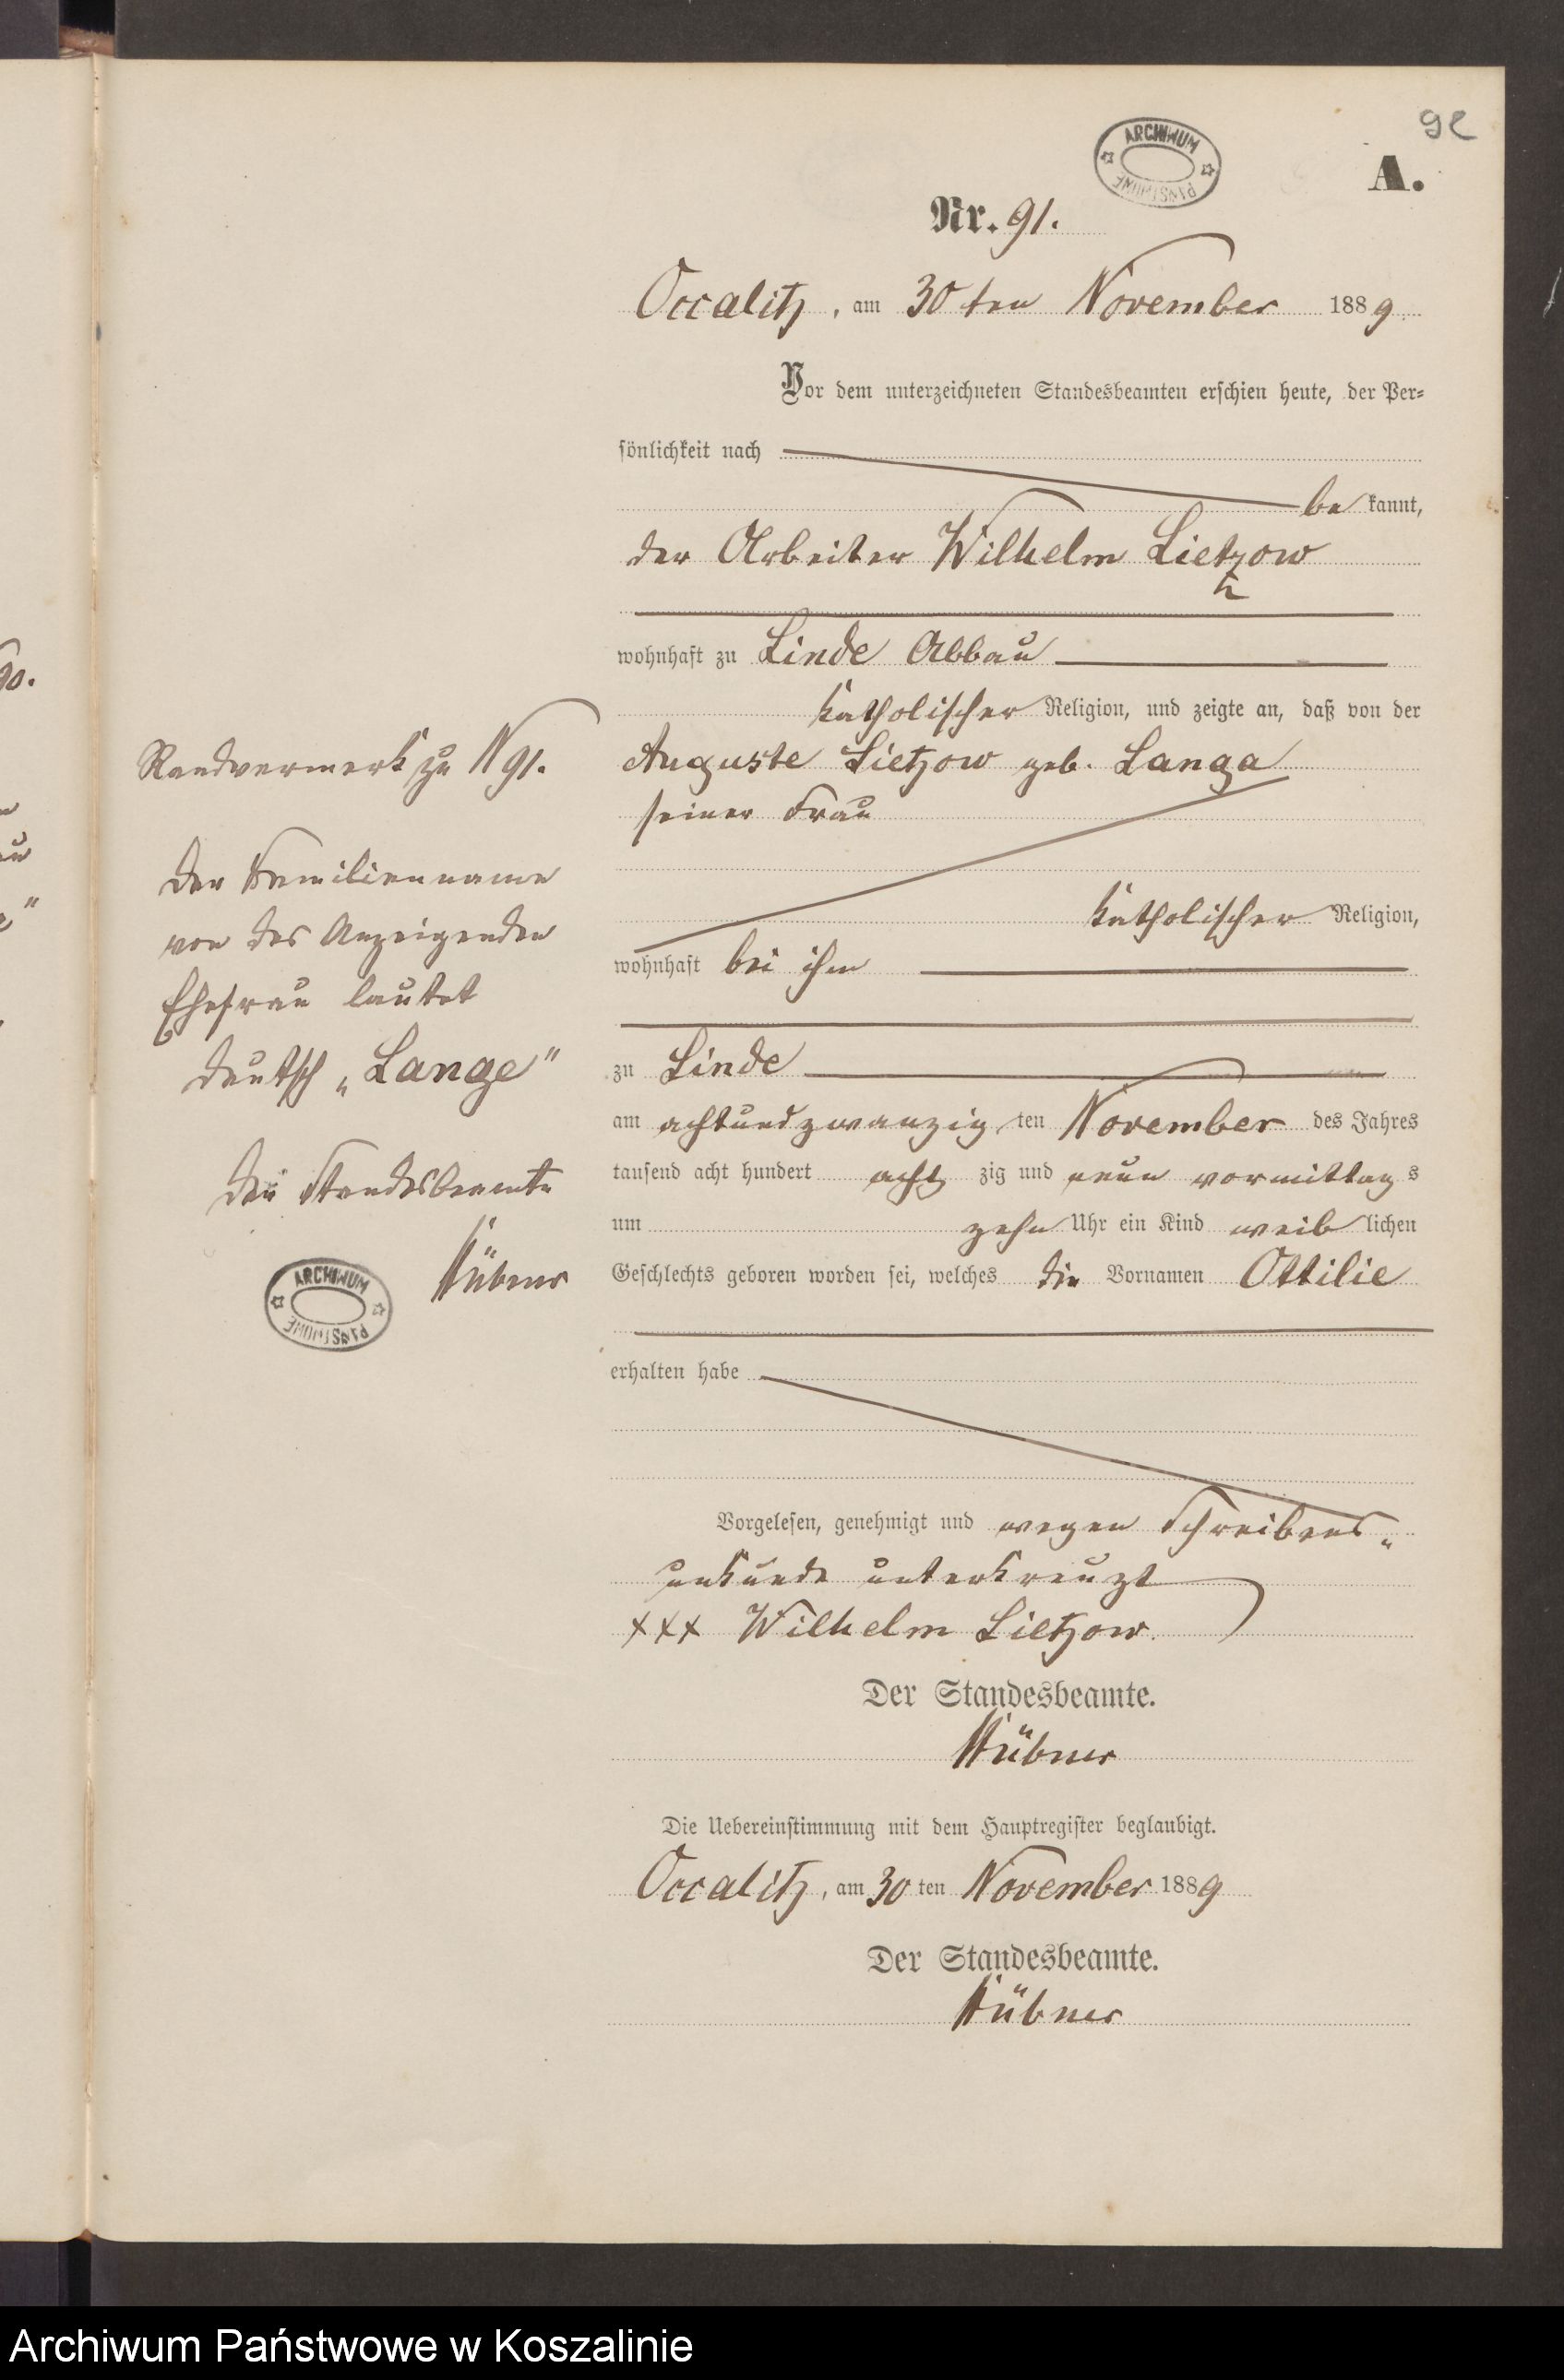 92
ARCHIWUM PAŃSTWOWE
A.
Nr. 91.
Occalitz, am 30ten November 1889
Vor dem unterzeichneten Standesbeamten erschien heute, der Per-
sönlichkeit nach
be kannt,
der Arbeiter Wilhelm Lietzow
wohnhaft zu Linde Abbau
katholischer Religion, und zeigte an, daß von der
Auguste Lietzow geb. Langa
seiner Frau
katholischer Religion,
wohnhaft bei ihm
zu Linde
am achtundzwanzig ten November des Jahres
tausend acht hundert acht zig und neun vormittag s
um zehn Uhr ein Kind weib lichen
Geschlechts geboren worden sei, welches die Vornamen Ottilie
erhalten habe
Vorgelesen, genehmigt und wegen Schreibens-
unkunde unterkreuzt
xxx Wilhelm Lietzow.
Der Standesbeamte.
Hübner
Die Uebereinstimmung mit dem Hauptregister beglaubigt.
Occalitz, am 30 ten November 1889
Der Standesbeamte.
Hübner
Randvermerk zu N 91.
Der Familienname
von des Anzeigenden
Ehefrau lautet
deutsch „Lange"
Der Standesbeamte
Hübner
ARCHIWUM PAŃSTWOWE
90.
Archiwum Państwowe w Koszalinie